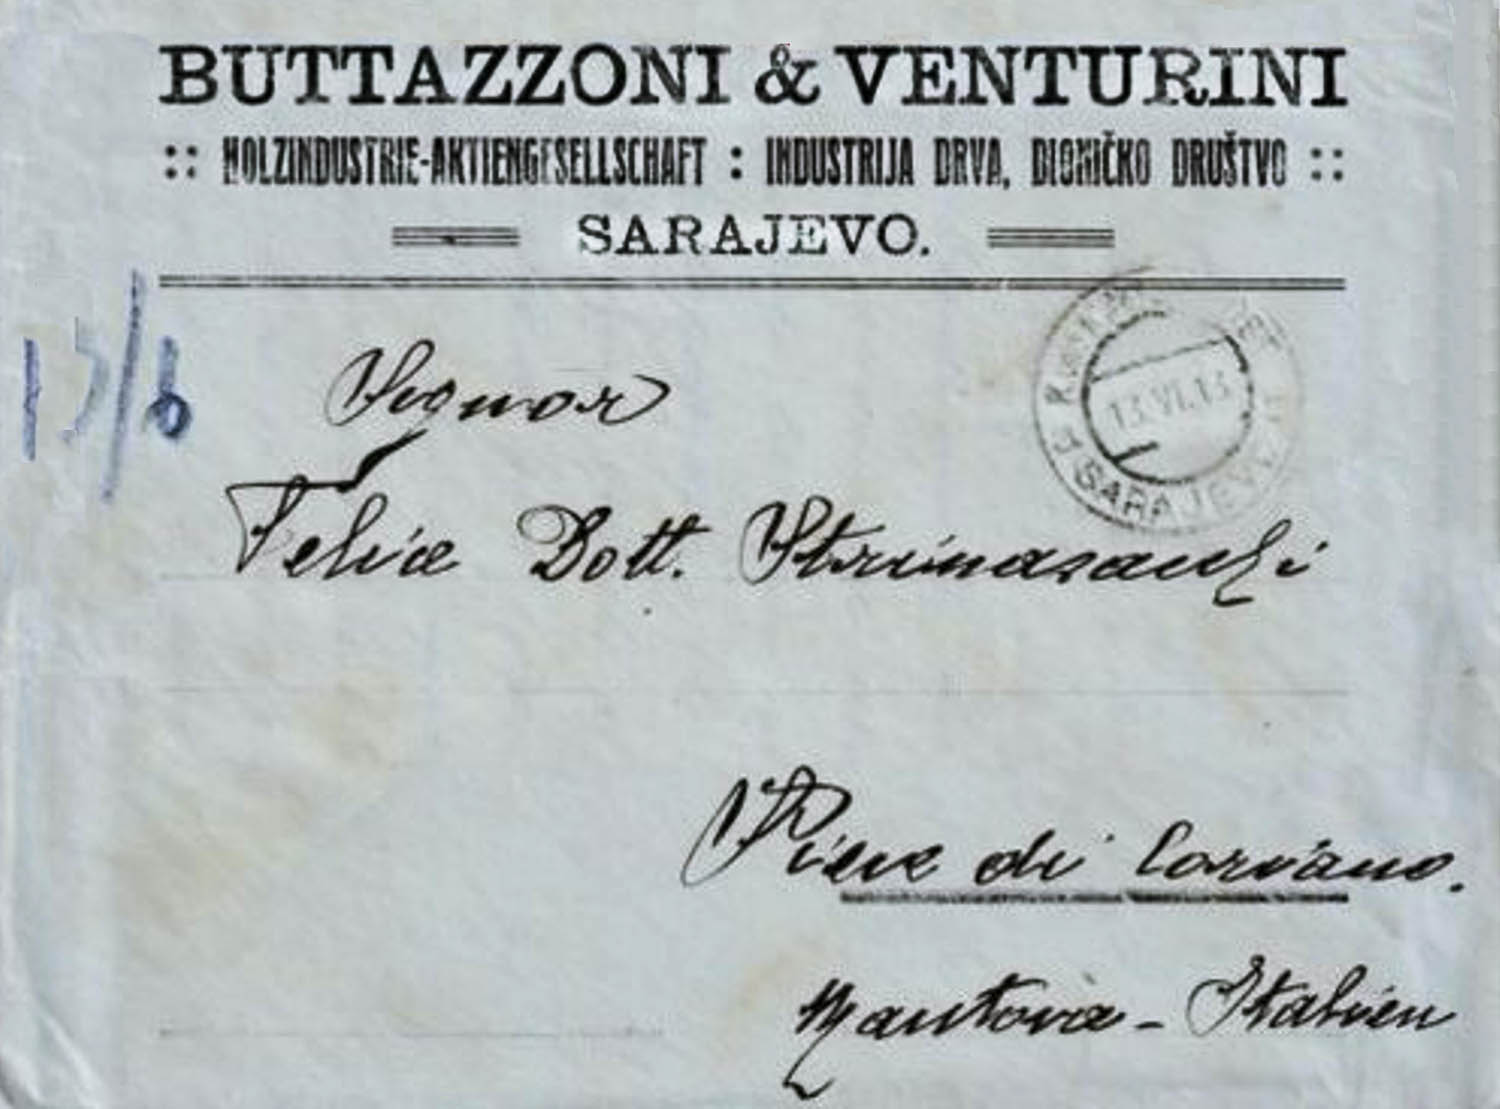 BUTTAZZONI & VENTURINI
:: HOLZINDUSTRIE-AKTIENGESELLSCHAFT : INDUSTRIJA DRVA, DIONIČKO DRUŠTVO ::
SARAJEVO.
13/6
Signor
13.VI.13
SARAJEVO
Felice Dott. Strinasacchi
Pieve di Coriano.
Mantova - Italien